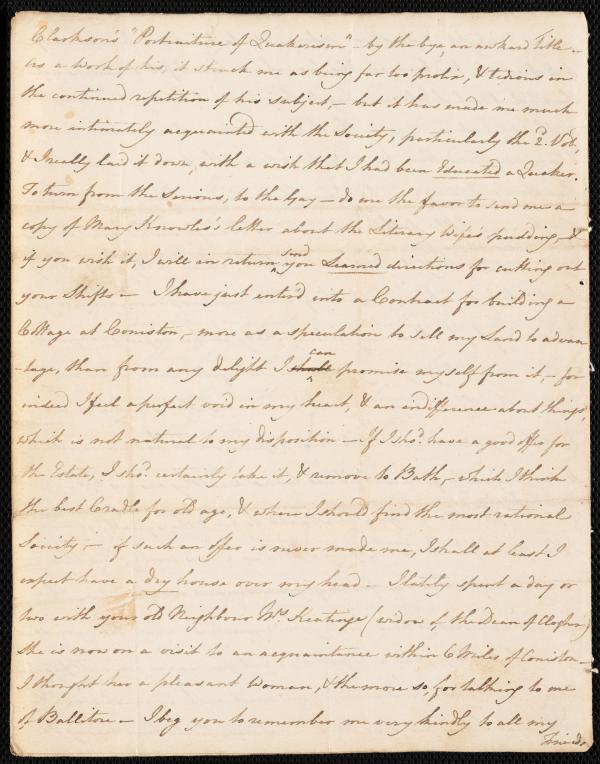 Clarkson's "Portraiture of Quakerism" - by the bye, an awkard Title -
As a Work of his, it struck me as being far too prolix, & tedious in
the continued repetition of his subject, - but it has made me much
more intimately acquainted with the Society, particularly the 2d. Vol.
& I really laid it down, with a wish that I had been Educated a Quaker.
To turn from the Serious, to the Gay - do me the favor to send me a
copy of Mary Knowles's letter about the Literary Wife's pudding, &
if you wish it, I will in return send you Learned directions for cutting out
your Shifts - I have just enter'd into a Contract for building a
Cottage at Coniston, - more as a speculation to sell my Land to advan
-tage, than from any delight I shall can promise myself from it, - for
indeed I feel a perfect void in my heart, & an indifference about things,
which is not natural to my disposition - If I shod. have a good offer for
the Estate, I shod. certainly take it, & remove to Bath, - which I think
the best Cradle for old age, & where I should find the most rational
Society - if such an offer is never made me, I shall at least I
expect have a dry house over my head - I lately spent a day or
two with your old Neighbour Mrs. Keatinge (widow of the Dean of Clogher)
She is now on a visit to an acquaintance within 6 Miles of Coniston -
I thought her a pleasant Woman, & the more so, for talking to me
of Ballitore - I beg you to remember me very kindly to all my
Friends